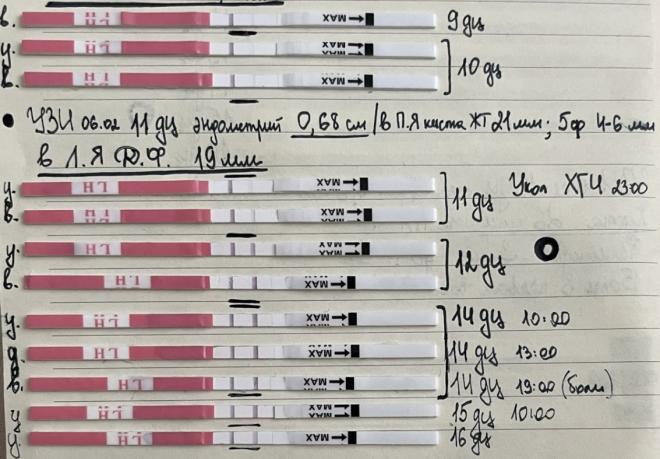 в. LH MAX 9 дц
у. LH MAX
в. LH MAX 10 дц
• УЗИ 06.02 11 дц эндометрий 0,68 см / в П.Я киста ЖТ 21 мм; 5ф 4-6 мм
в Л.Я Д.Ф. 19 мм
у. LH MAX
в. LH MAX 11 дц Укол ХГЧ 23:00
у. LH MAX
в. LH MAX 12 дц
у. LH MAX 14 дц 10:00
д. LH MAX 14 дц 13:00
в. LH MAX 14 дц 19:00 (боли)
у LH MAX 15 дц 10:00
у. LH MAX 16 дц